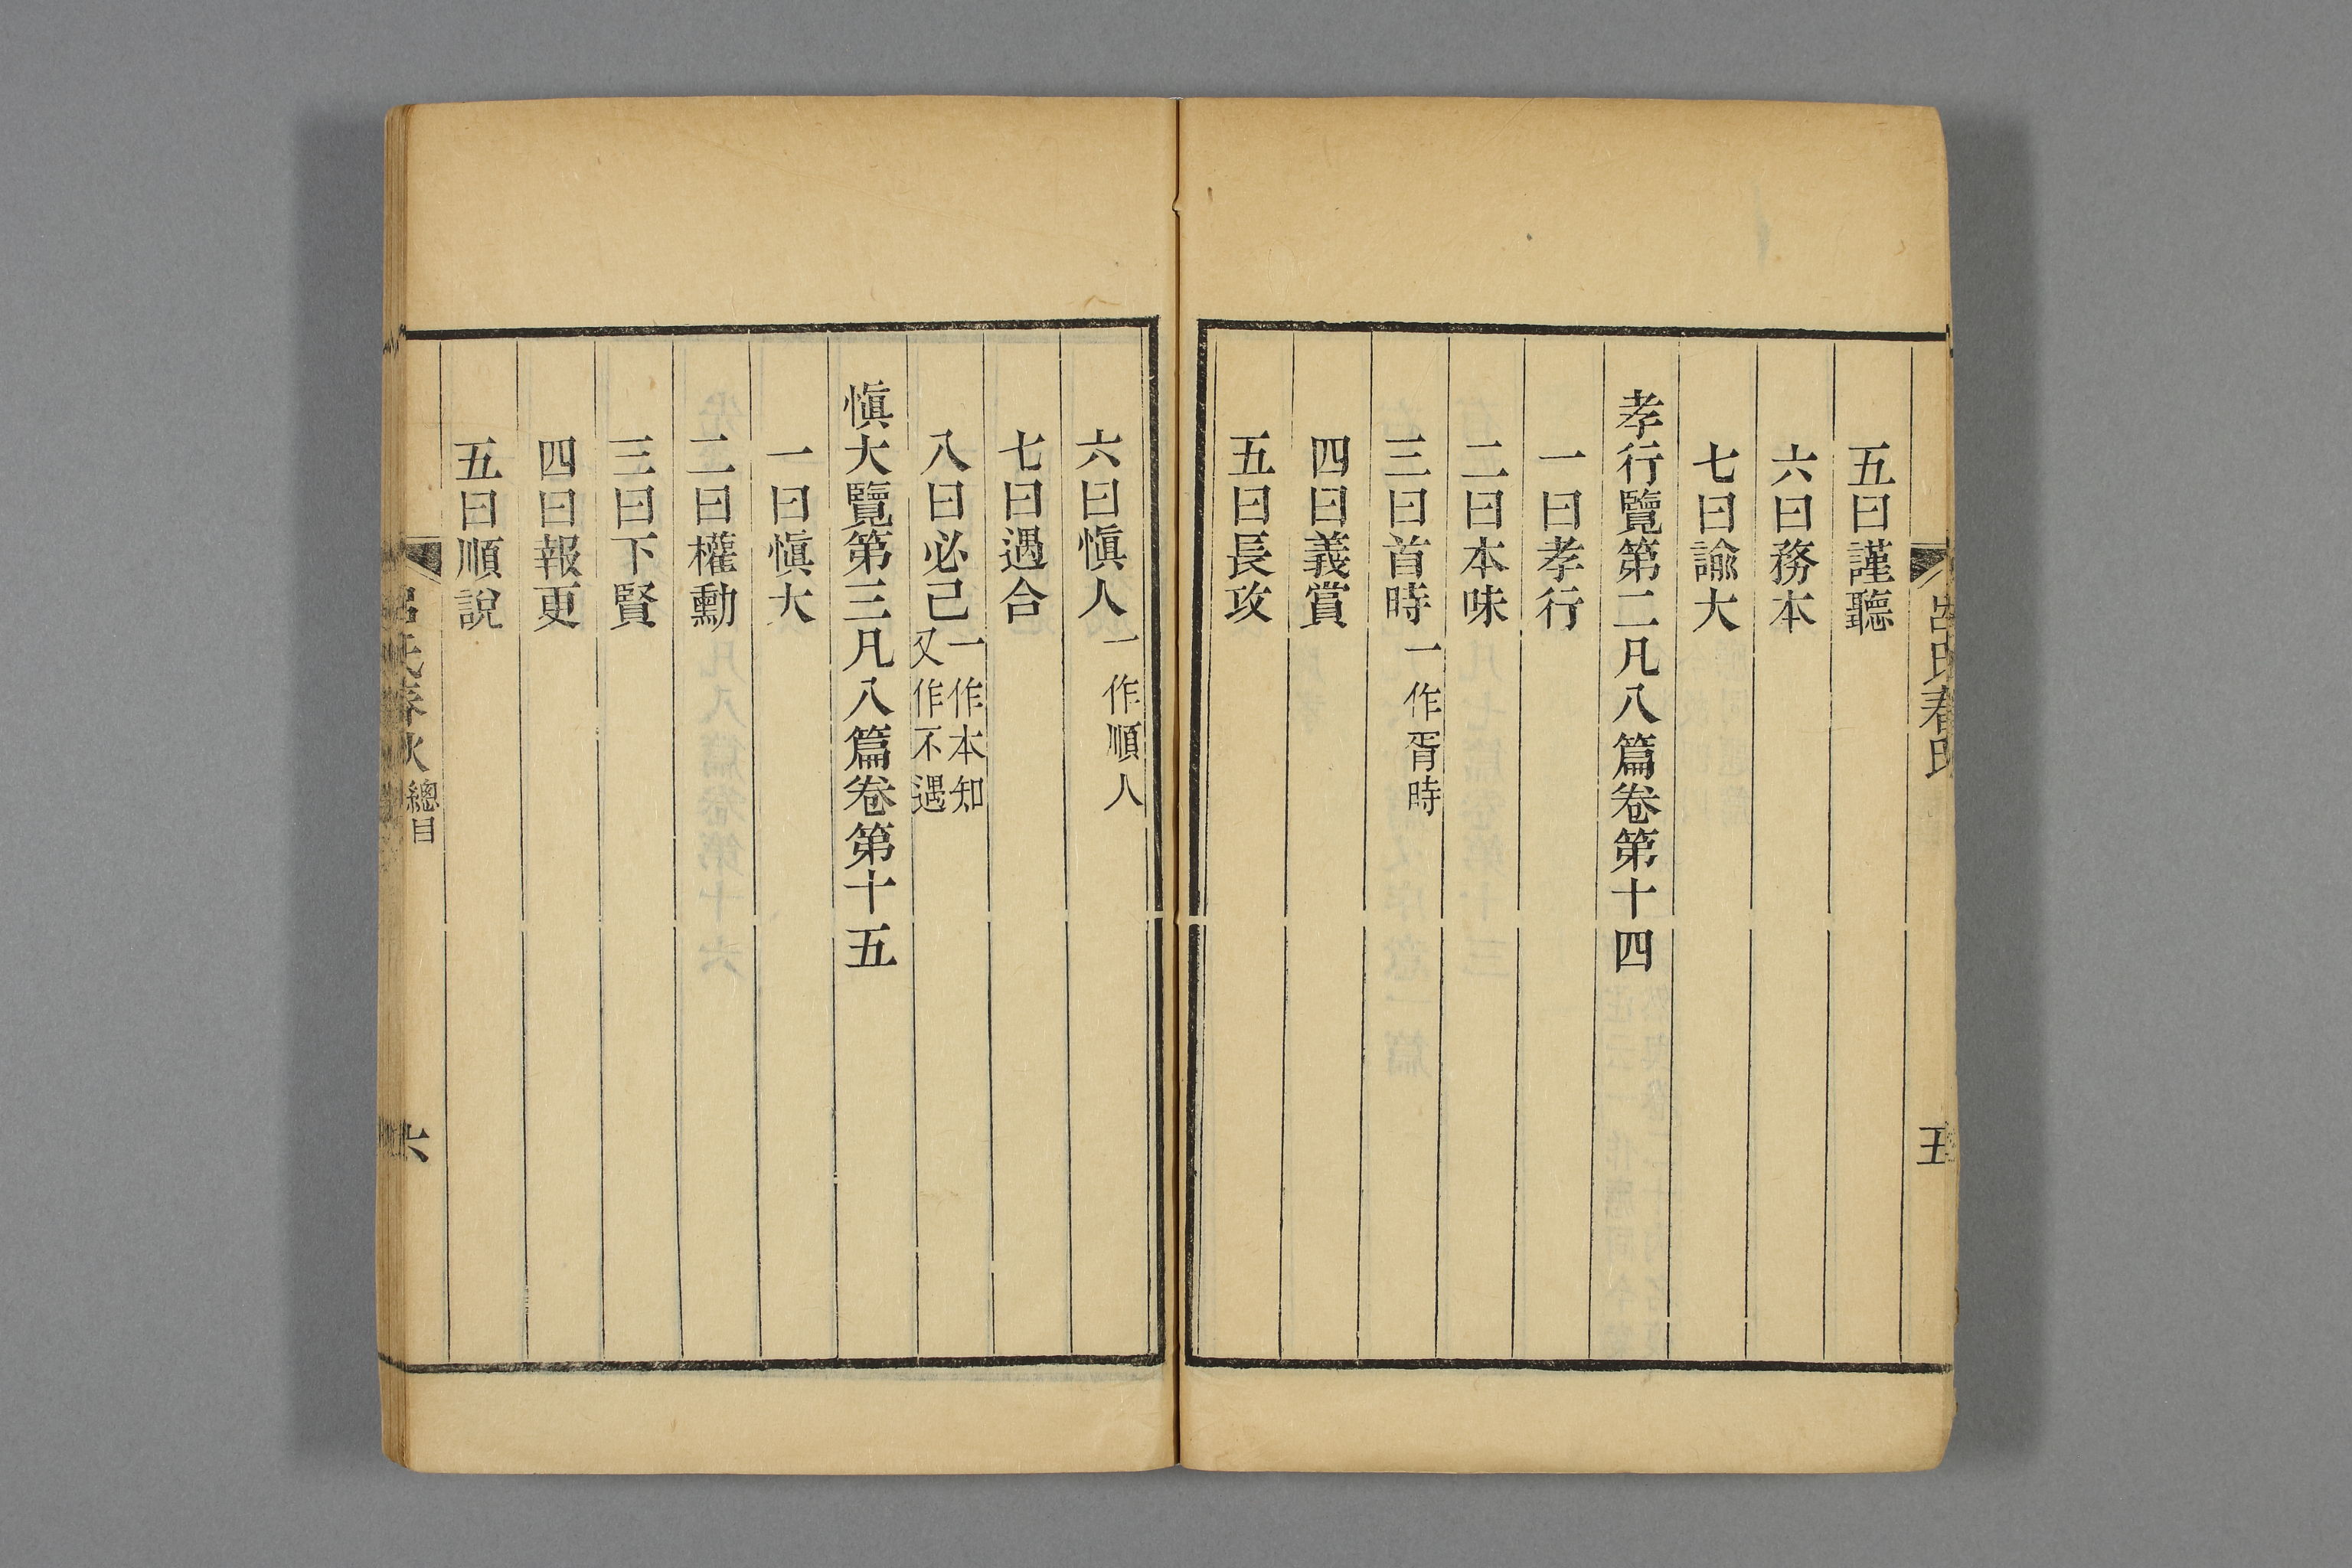 五曰謹聽
六曰務本
七曰諭大
孝行覽第二凡八篇卷第十四
一曰孝行
二曰本味
三曰首時一作胥時
四曰義賞
五曰長攻
五
六曰愼人一作順人
七曰遇合
八曰必己一作本知又作不遇
愼大覽第三凡八篇卷第十五
一曰愼大
二曰權勳
三曰下賢
四曰報更
五曰順說
呂氏春秋 總目
六